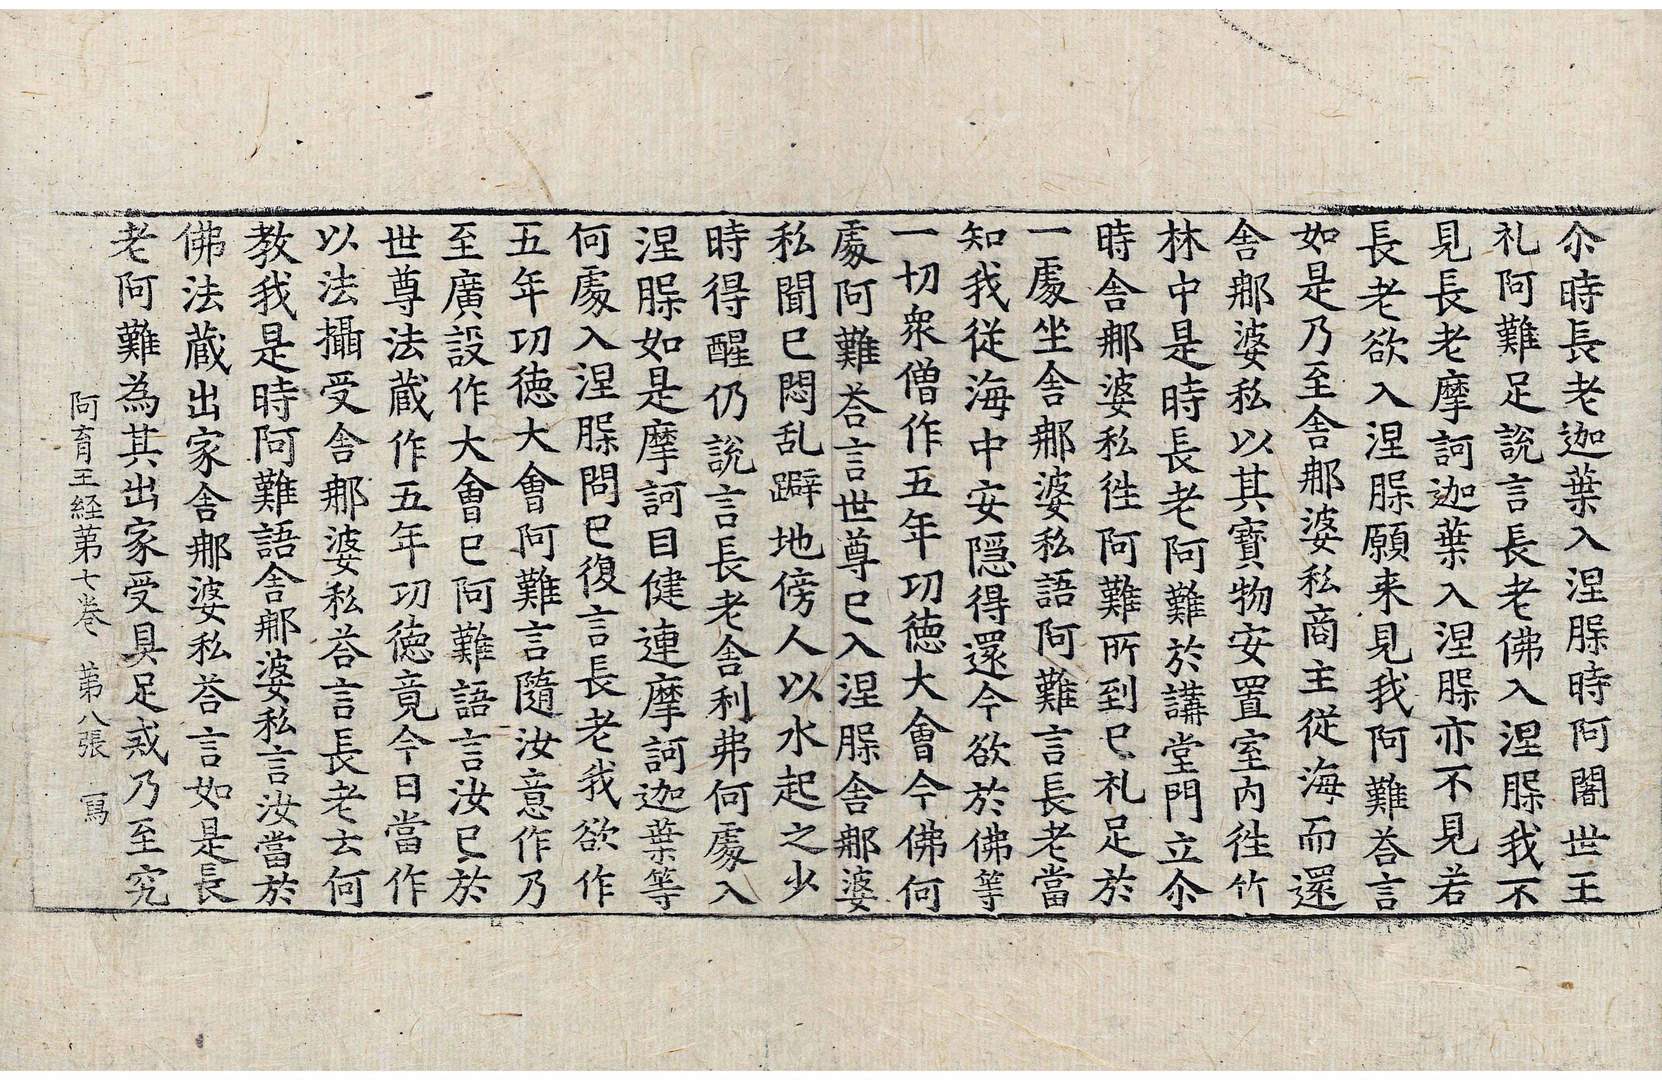 尒時長老迦葉入涅脲時阿闍世王
礼阿難足說言長老佛入涅脲我不
見長老摩訶迦葉入涅脲亦不見若
長老欲入涅脲願来見我阿難荅言
如是乃至舍那婆私商主從海而還
舍那婆私以其寶物安置室内徃竹
林中是時長老阿難於講堂門立尒
時舍那婆私徃阿難所到已礼足於
一處坐舍那婆私語阿難言長老當
知我從海中安隠得還今欲於佛等
一切衆僧作五年功徳大會今佛何
處阿難荅言世尊已入涅脲舍那婆
私聞已悶乱躃地傍人以水起之少
時得醒仍説言長老舍利弗何處入
涅脲如是摩訶目健連摩訶迦葉等
何處入涅脲問已復言長老我欲作
五年功徳大會阿難言隨汝意作乃
至廣設作大會已阿難語言汝已於
世尊法蔵作五年功徳竟今日當作
以法攝受舍那婆私荅言長老云何
教我是時阿難語舍那婆私言汝當於
佛法蔵出家舍那婆私荅言如是長
老阿難為其出家受具足戒乃至究
阿育王経第七巻 第八張 寫